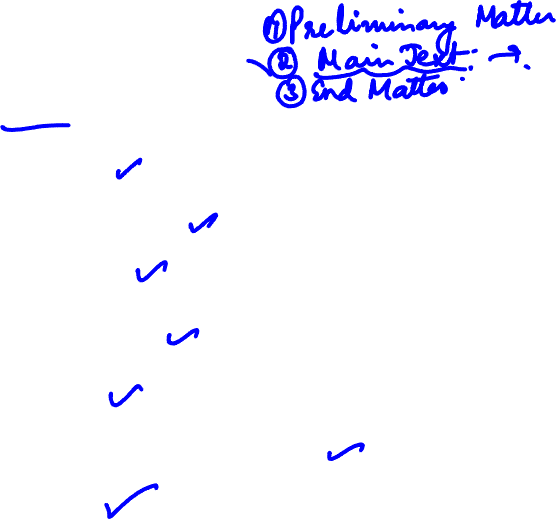 ① Preliminary Matter
② Main Text: →
③ End Matter: